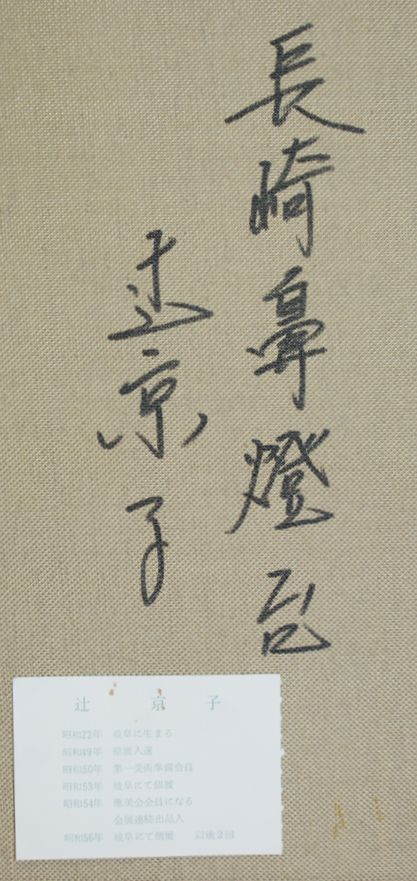 長崎鼻燈台
辻京子
辻 京 子
昭和22年 岐阜に生まる
昭和49年 県展入選
昭和50年 第一美術準備会員
昭和53年 岐阜にて個展
昭和54年 會員になる
会展連続出品入
昭和56年 岐阜にて個展 以後2回